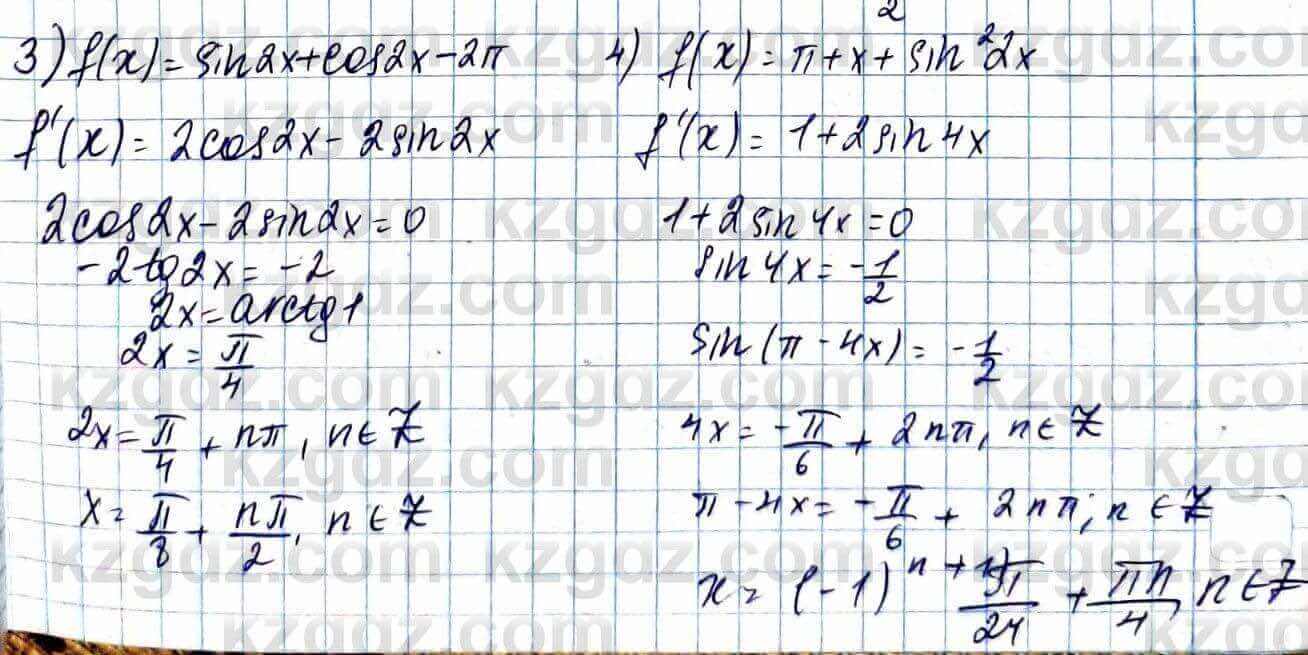 3) f(x) = sin2x+cos2x-2π
f'(x) = 2cos2x - 2sin2x
2cos2x - 2sin2x = 0
-2tg2x = -2
2x = arctg1
2x = π/4
2x = π/4 + nπ, n∈Z
x = π/8 + nπ/2, n∈Z
2
4) f(x) = π+x+sin²2x
f'(x) = 1+2sin4x
1+2sin4x = 0
sin4x = -1/2
sin(π-4x) = -1/2
4x = -π/6 + 2nπ, n∈Z
π-4x = -π/6 + 2nπ; n∈Z
x = (-1)ⁿ⁺¹ π/24 + πn/4, n∈Z
kzgdz.com